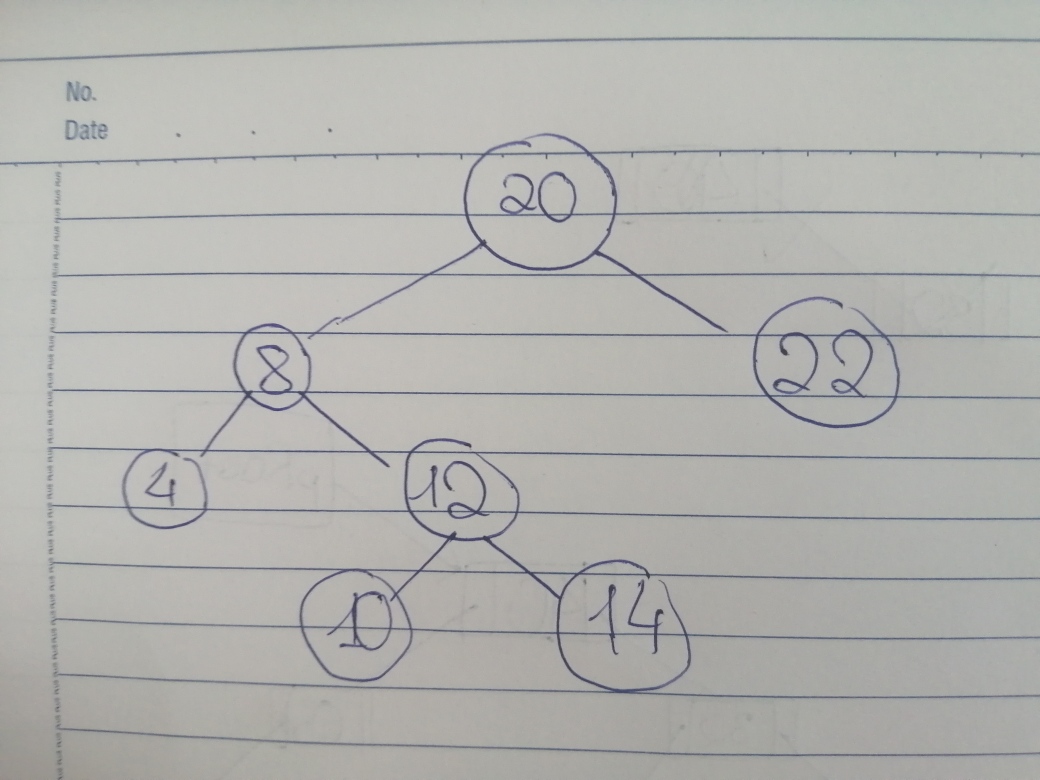 No.
Date
20
8
22
4
12
10
14